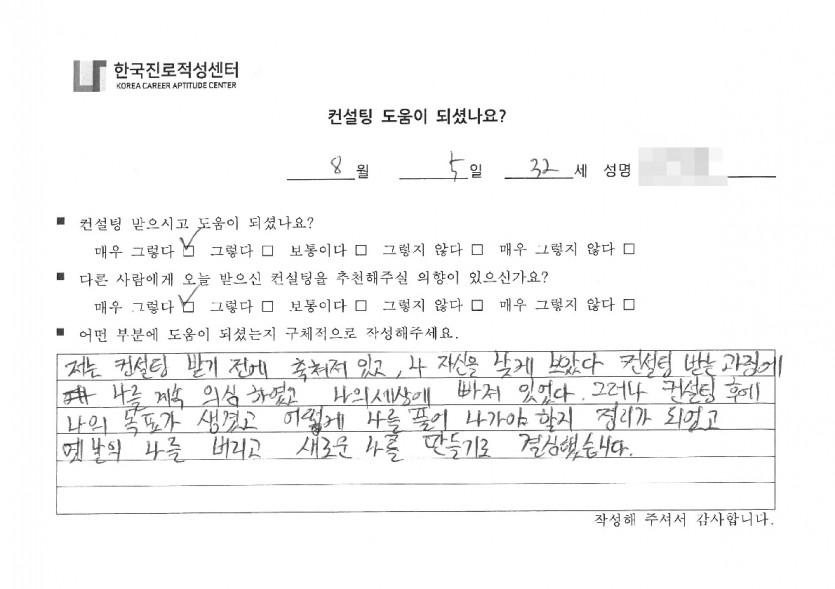 한국진로적성센터
KOREA CAREER APTITUDE CENTER
컨설팅 도움이 되셨나요?
8월 5일 32세 성명
■ 컨설팅 받으시고 도움이 되셨나요?
매우 그렇다 ☑ 그렇다 □ 보통이다 □ 그렇지 않다 □ 매우 그렇지 않다 □
■ 다른 사람에게 오늘 받으신 컨설팅을 추천해주실 의향이 있으신가요?
매우 그렇다 ☑ 그렇다 □ 보통이다 □ 그렇지 않다 □ 매우 그렇지 않다 □
■ 어떤 부분에 도움이 되었는지 구체적으로 작성해주세요.
저는 컨설팅 받기 전에 축쳐져 있고, 나 자신을 낮게 보았다 컨설팅 받는 과정에
나를 계속 의심 하였고 나의 세상에 빠져 있었다. 그러나 컨설팅 후에
나의 목표가 생겼고 어떻게 나를 풀어 나가야 할지 정리가 되었고
옛날의 나를 버리고 새로운 나를 만들기로 결심했습니다.
작성해 주셔서 감사합니다.